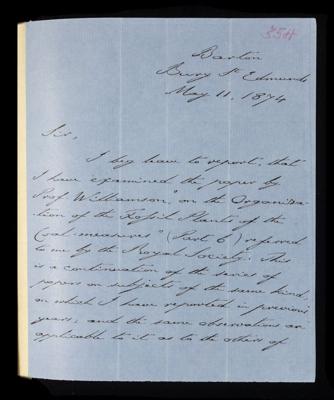 354
Barton
Bury St Edmunds
May 11, 1874
Sir,
I beg leave to report, that
I have examined the paper by
Prof. Williamson, "on the Organiza-
tion of the Fossil Plants of the
Coal-measures" (Part 6) referred
to me by the Royal Society. This
is a continuation of the series of
papers on subjects of the same kind,
on which I have reported in previous
years; and the same observations are
applicable to it as to the others of